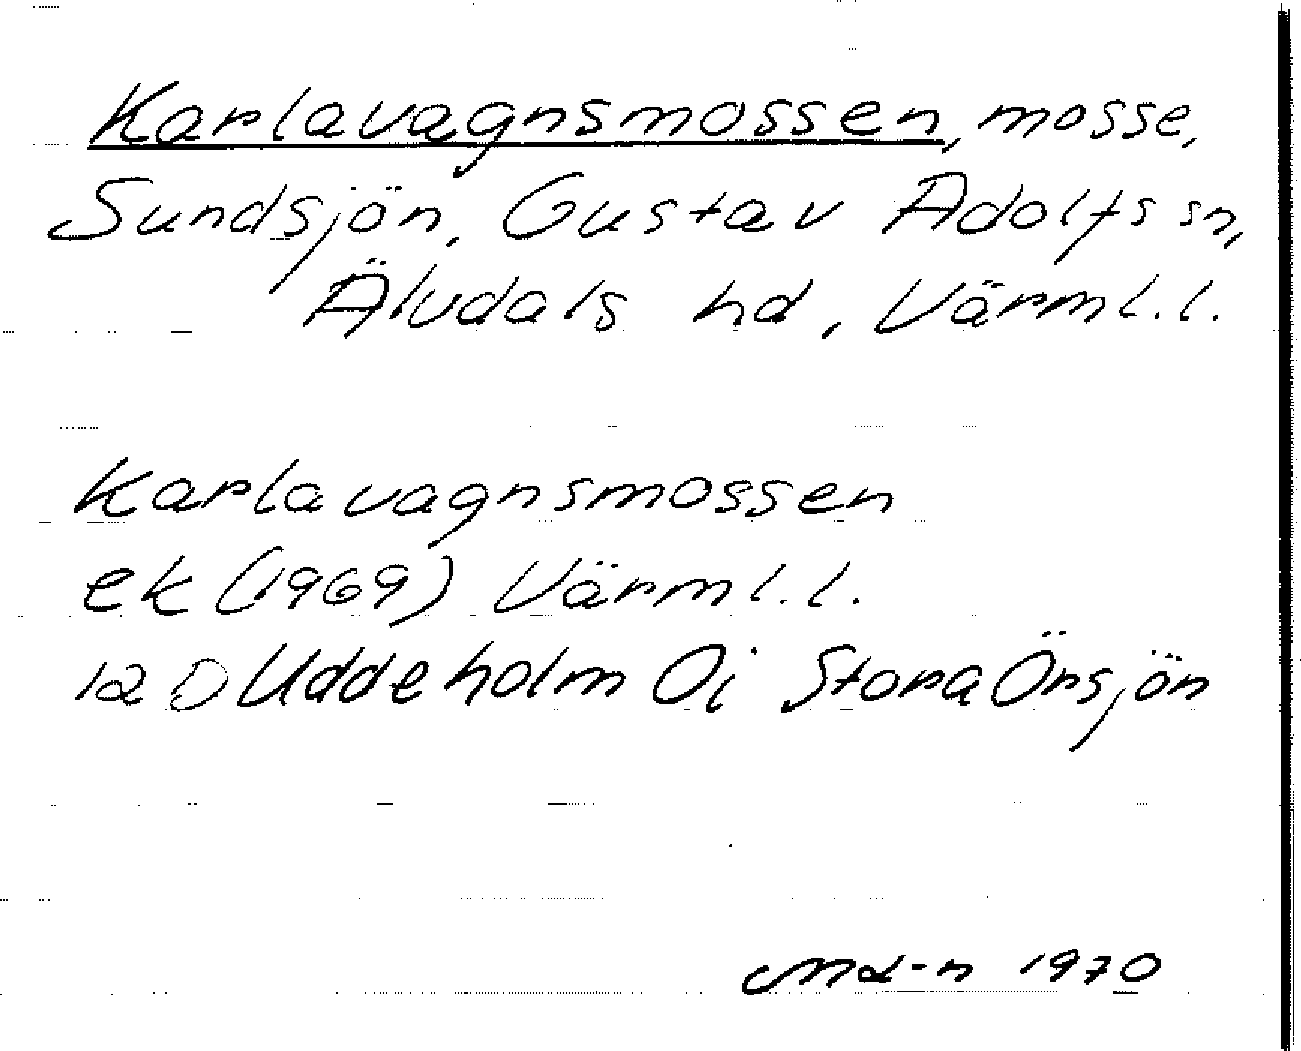 Karlavagnsmossen, mosse,
Sundsjön, Gustav Adolfs sn,
Älvdals hd, Värml. l.
Karlavagnsmossen
ek (1969) Värml. l.
12 D Uddeholm 0i Stora Örsjön
1970